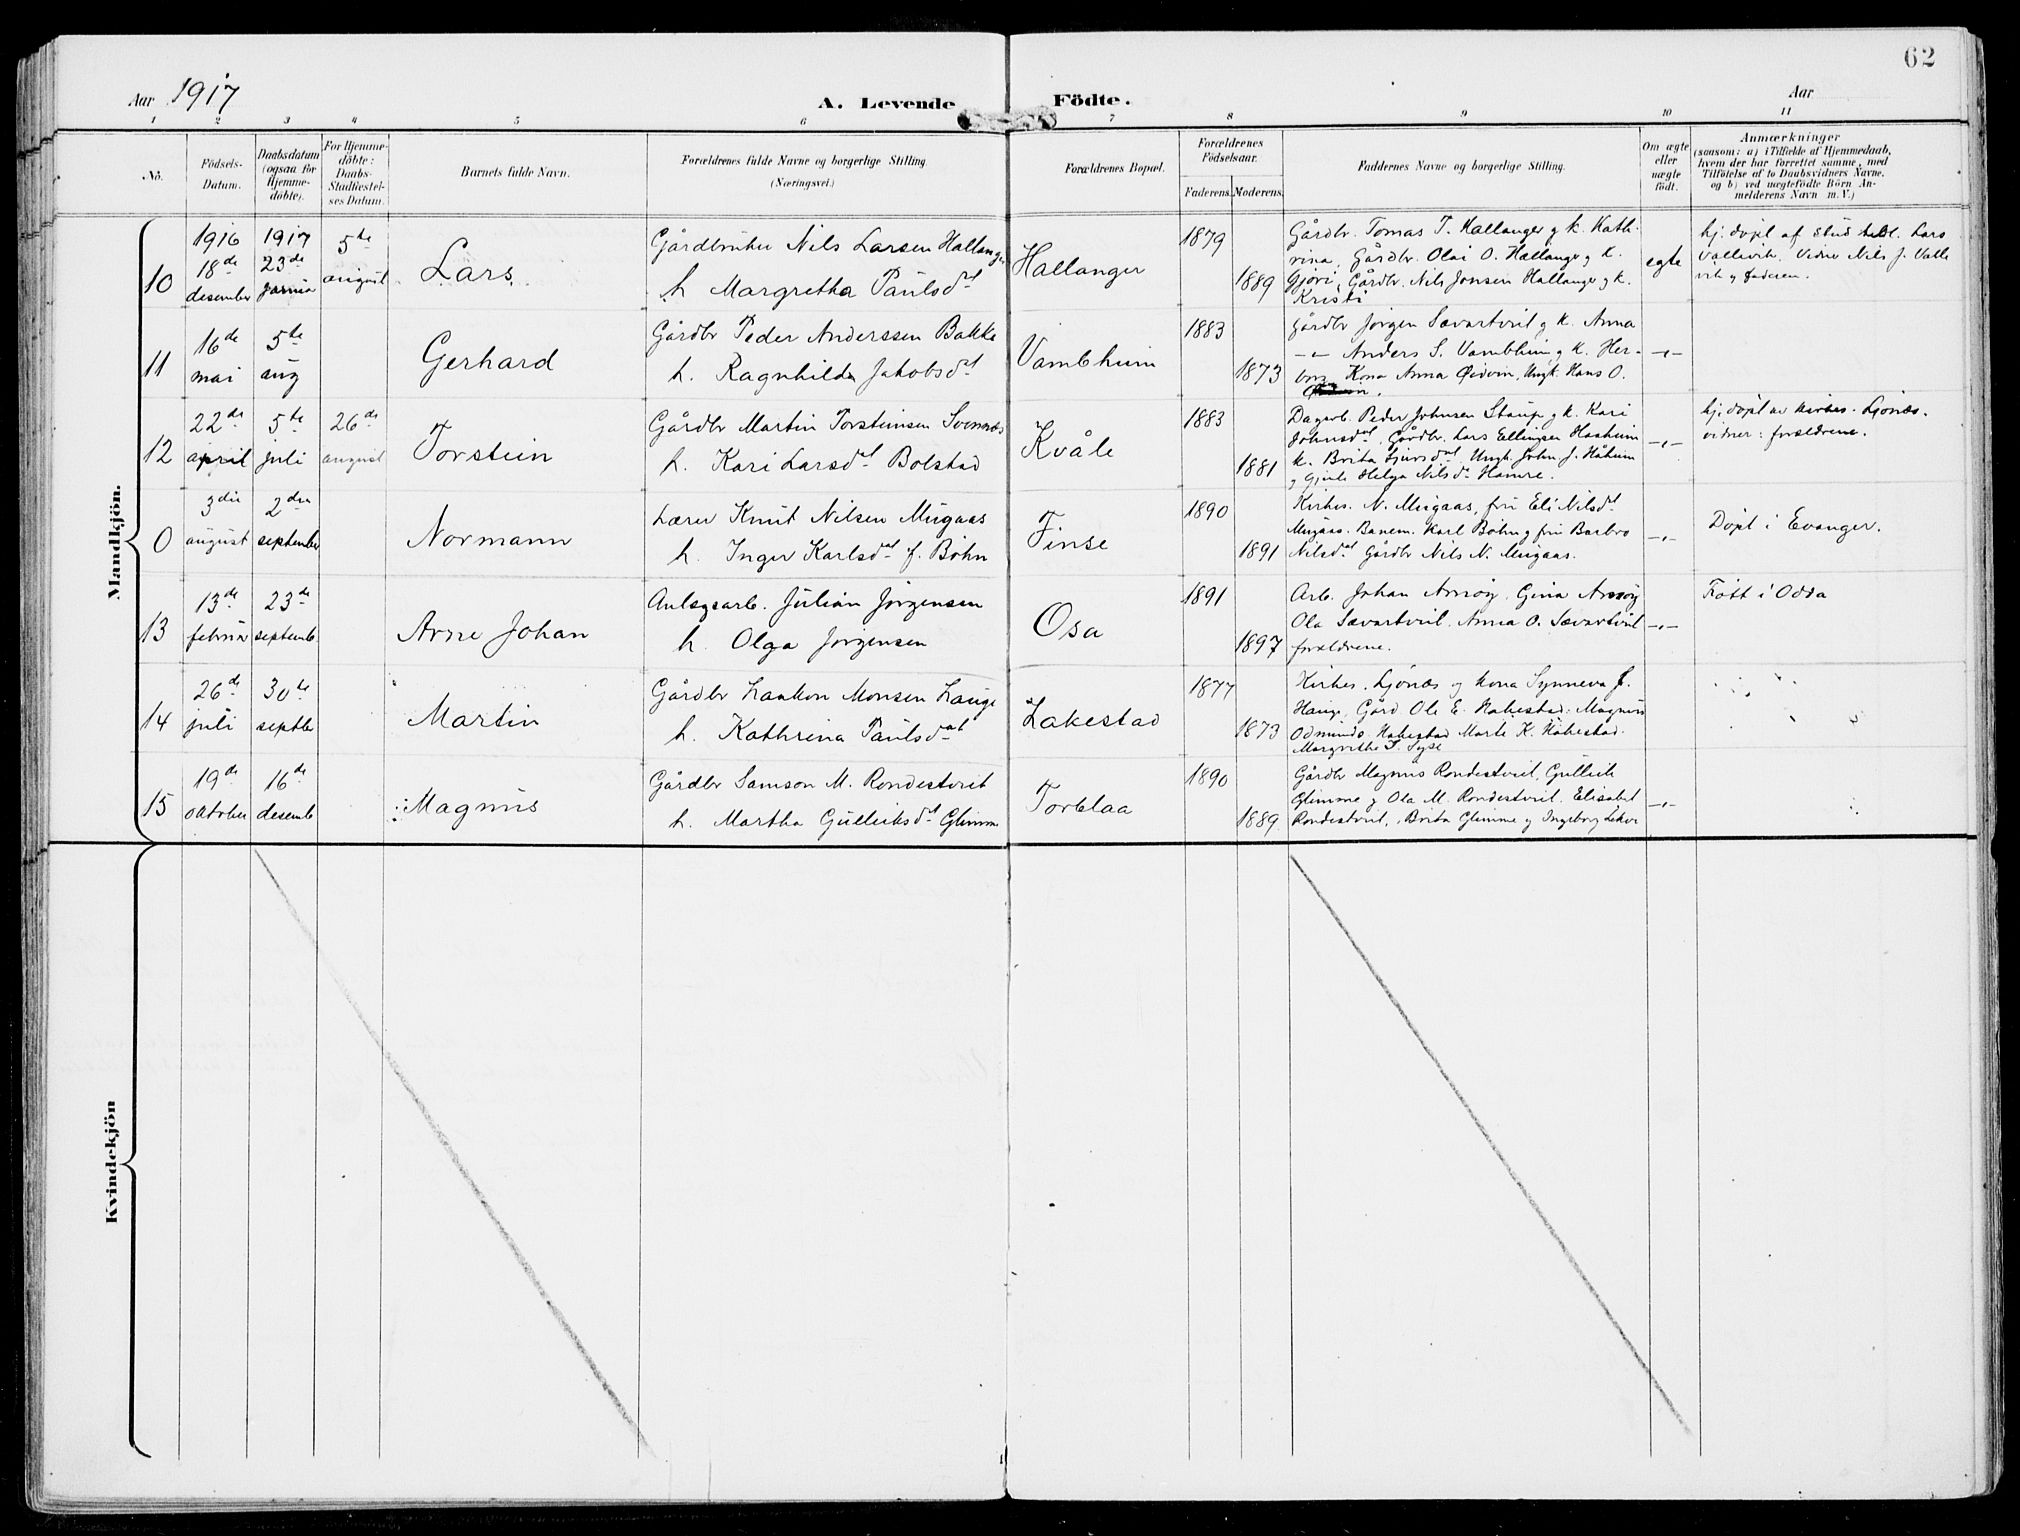 62
Aar 1917
A. Levende Födte.
Aar
1 2 3 4 5 6 7 8 9 10 11
No.
Födsels-Datum.
Daabsdatum (ogsaa for Hjemme-döbte).
For Hjemme-döbte: Daabs-Stadfæstel-ses Datum.
Barnets fulde Navn.
Forældrenes fulde Navne og borgerlige Stilling (Næringsvei.)
Forældrenes Bopæl.
Forældrenes Födselsaar.
Faderens. Moderens.
Faddernes Navne og borgerlige Stilling.
Om ægte eller uægte födt.
Anmærkninger
(saasom: a) i Tilfælde af Hjemmedaab,
hvem der har forrettet samme, med
Tilföielse af to Daabsvidners Navne,
og b) ved uægtefödte Börn An-
melderens Navn m. V.)
Mandkjön.
10
1916 18de desember
1917 23de januar
5te august
Lars
Gårdbruker Nils Larsen Hallanger
h. Margretha Paulsdt
Hallanger
1879
1889
Gårdbr. Tomas T. Hallanger g k. Kath-
rina, Gårdbr. Olai O. Hallanger g k.
Gjøri, Gårdbr. Nils Jonsen Hallanger g k.
Kristi
egte
hj. døpt af stud. Lars
Vallevik. Vidner Nils J. Valle
vik g faderen.
11
16de mai
5te aug
Gerhard
Gårdbr Peder Anderssen Bakke
h. Ragnhilda Jakobsdt
Vambheim
1883
1873
Gårdbr Jørgen Sævartveit g k. Anna
-"- Anders S. Vambheim g k. Her-
borg Kona Anna Øydvin, Ungk. Hans O.
-"-
12
22de april
5te juli
26de august
Torstein
Gårdbr Martin Torsteinsen Svennes
h. Kari Larsdt Bolstad
Kvåle
1883
1881
Dagarb. Peder Johnsen Staup g k. Kari
Johnsdt, Gårdbr. Lars Ellingsen Haaheim
k. Brita Sjursdt Ungk. John J. Håheim
g Gjente Helga Nilsdt Hamre.
-"-
hj. døpt av kirkes. Ljonæs.
vitner: forældrene.
0
3die august
2den september
Normann
Lærer Knut Nilsen Mugaas
h. Inger Karlsdat f. Bøhn
Finse
1890
1891
Kirkes. N. Mugaas, fru Eli Nilsdt
Mugaas. Banem. Karl Bøhn g fru Barbro
Nilsdat Gårdbr Nils N. Mugaas.
-"-
Døpt i Evanger.
13
13de februar
23de septemb
Arne Johan
Anlægsarb. Julian Jørgensen
h. Olga Jørgensen
Osa
1891
1897
Arb. Johan Arnøy, Gina Arnøy
Ola Sævartveit. Anna O. Sævartveit
forældrene.
-"-
Født i Odda
14
26de juli
30te septbr
Martin
Gårdbr Haakon Monsen Hauge
h. Kathrina Paulsdat
Hakestad
1877
1873
Kirkes. Ljonæs og kona Synneva J.
Hauge, Gård. Ole E. Hakestad. Magnus
Odmunds. Hakestad Marte K. Håkestad.
Margrethe T. Syse
15
19de oktober
16de desemb
Magnus
Gårdbr Samson M. Rondestveit
h. Martha Gulleiksdt Glimme
Torblaa
1890
1889
Gårdbr Magnus Rondestveit, Gulleik
Glimme g Ola M. Rondestveit. Elisabet
Rondestveit, Brita Glimme g Ingeborg Lekve
-"-
Kvindekjön